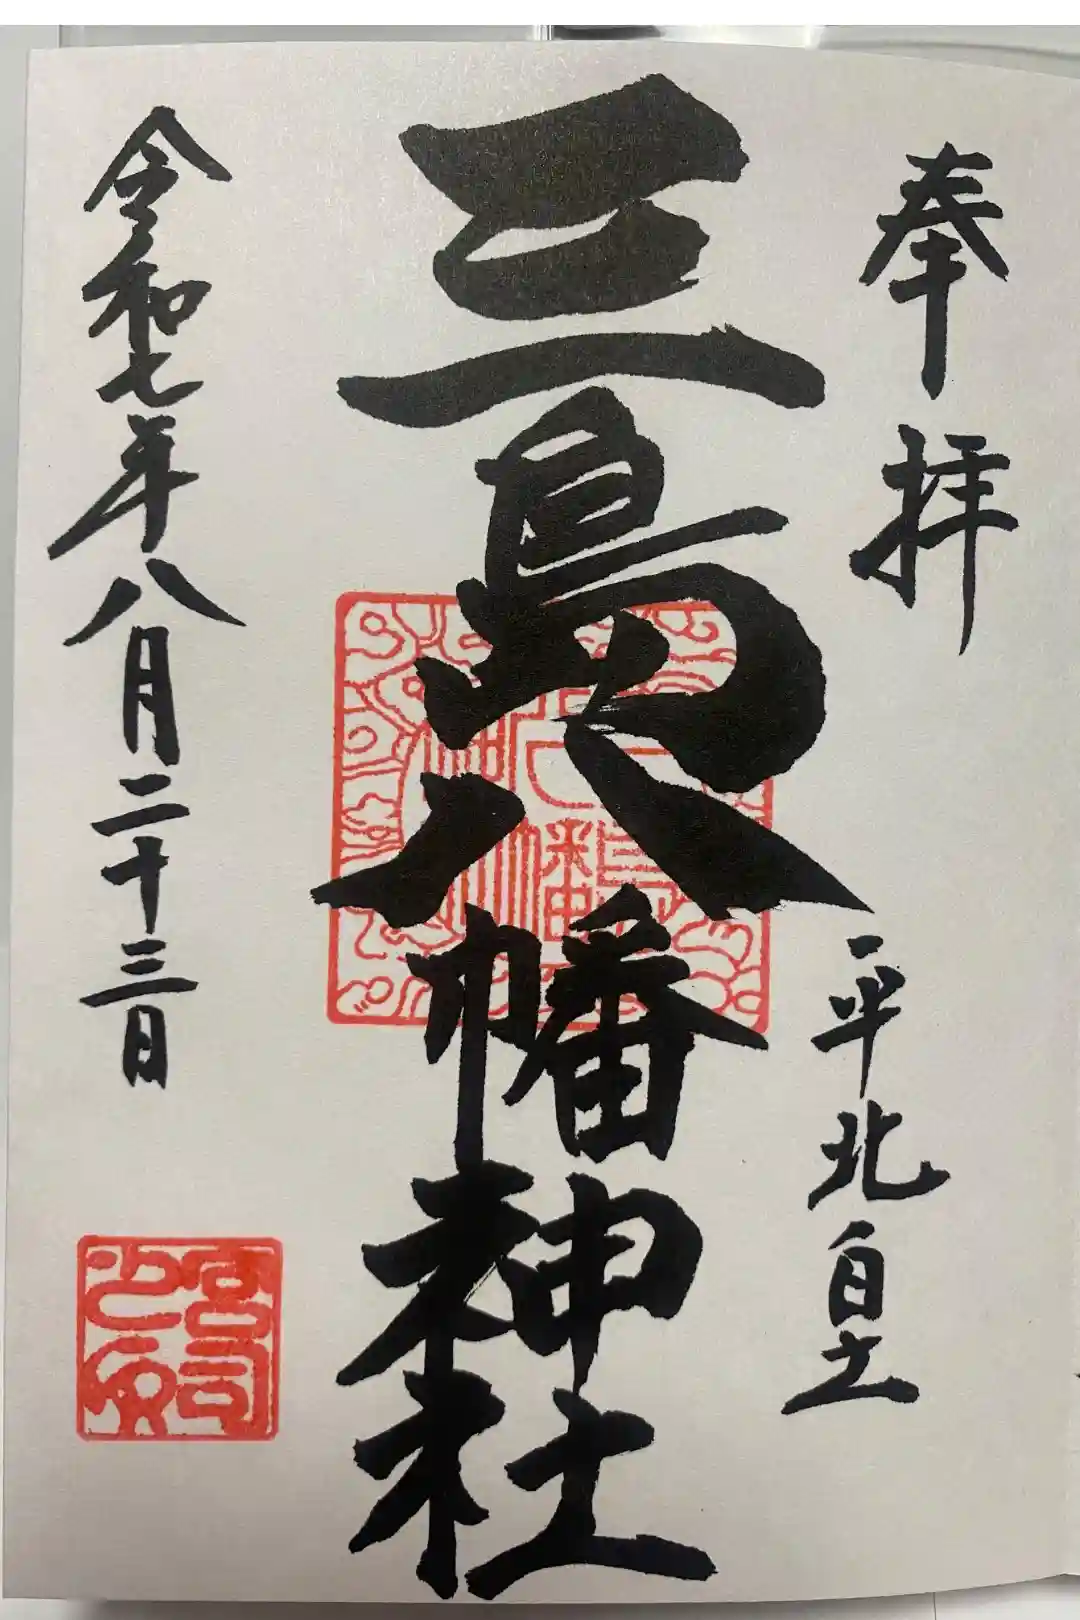 奉拝
平北白土
三島八幡神社
令和七年八月二十三日
宮司之印